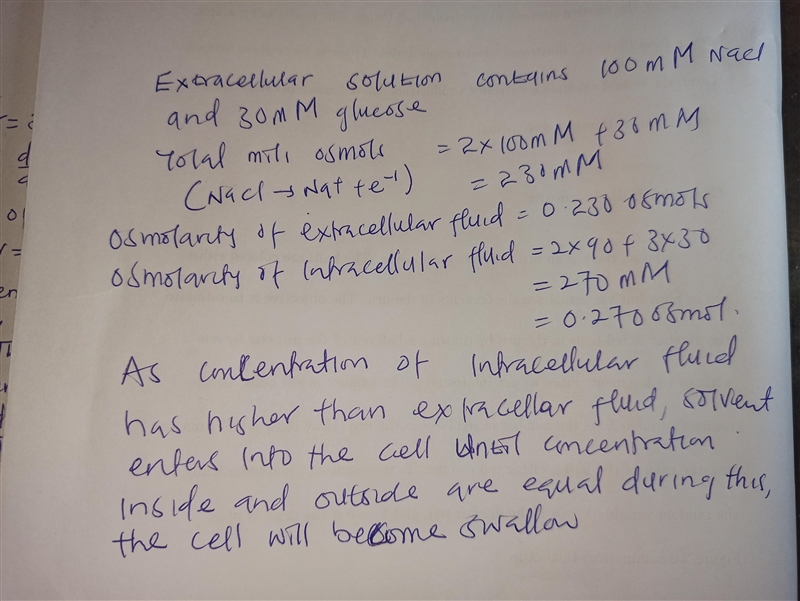 Extracellular solution contains 100mM Nacl
and 30mM glucose
Total mili osmols = 2x100mM + 30mM
(Nacl → Na+ + e-1) = 230mM
Osmolarity of extracellular fluid = 0.230 osmols
Osmolarity of Intracellular fluid = 2x90 + 3x30
= 270 mM
= 0.270 osmol.
As concentration of Intracellular fluid
has higher than extracellar fluid, solvent
enters into the cell until concentration
Inside and outside are equal during this,
the cell will become swallow